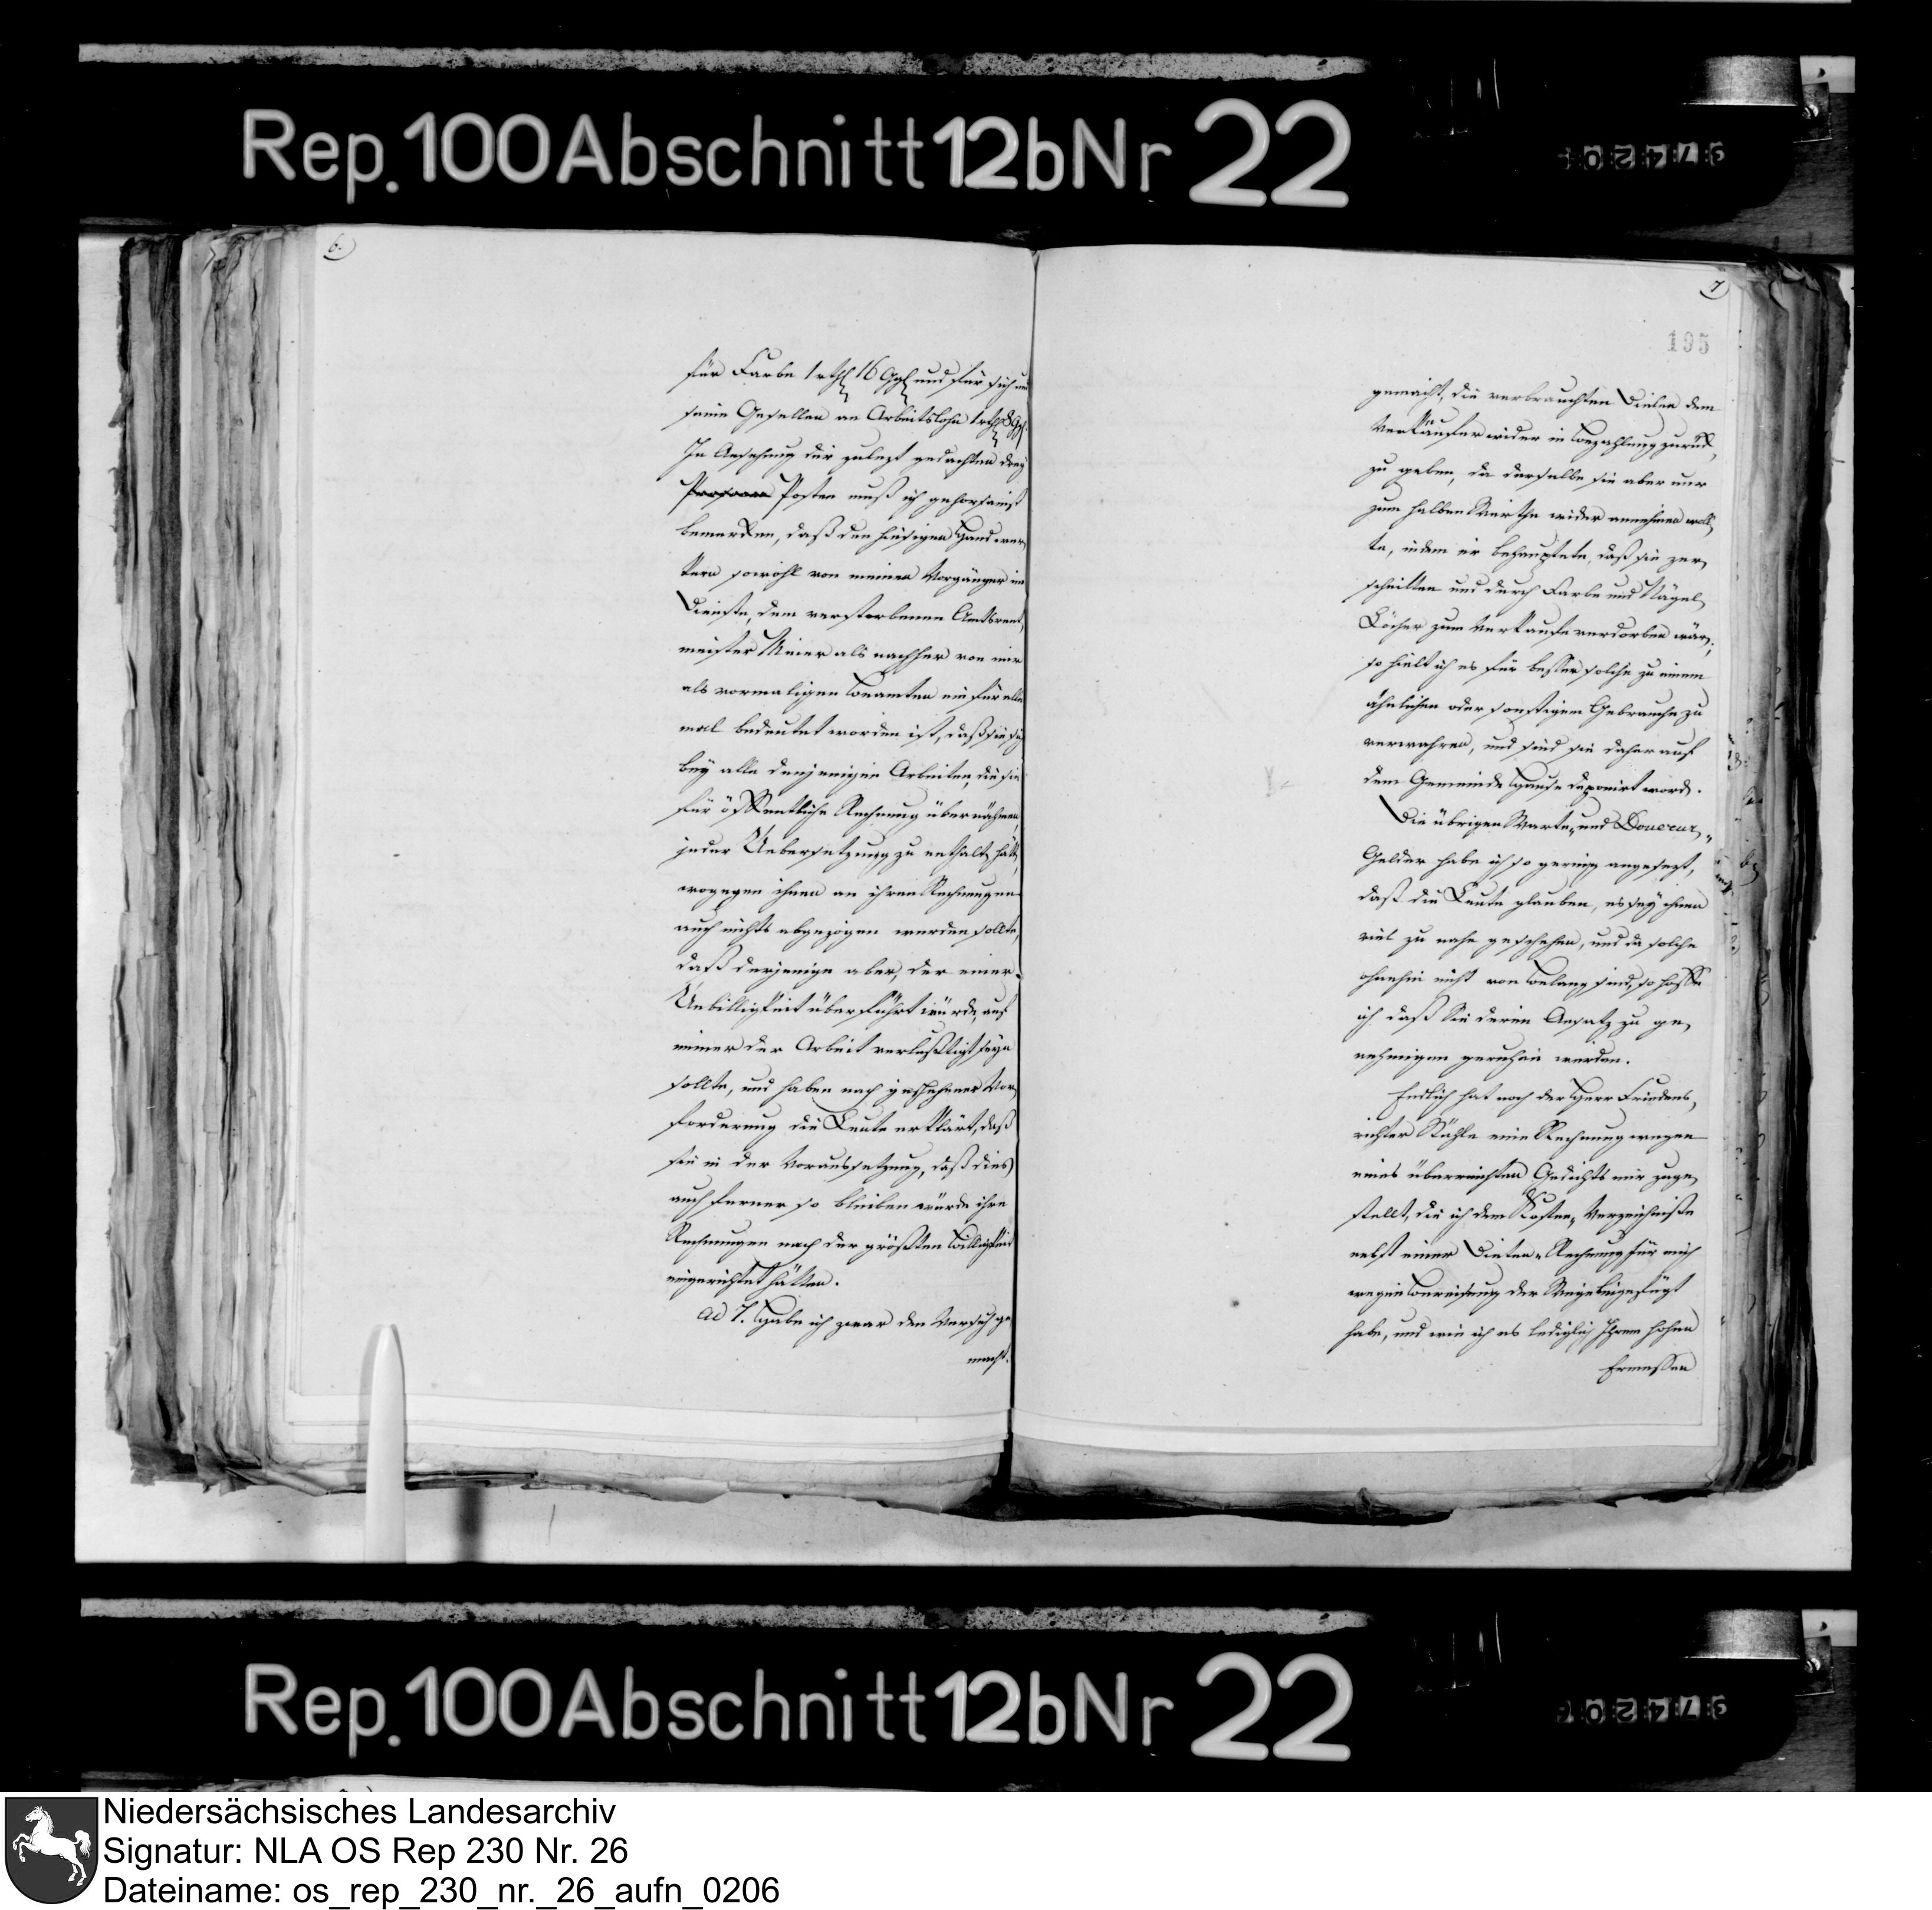 Rep. 100 Abschnitt 12b Nr 22
6.
für Farbe 1 rthl 16 Ggl und für sich und
seine Gesellen an Arbeitslohn 1 rthl 8 Ggl.
In Ansehung der zulezt gedachten drey
Posten muß ich gehorsamst
bemerken, daß den hiesigen Handwer,
kern sowohl von meinem Vorgänger im
Dienste, dem verstorbenen Amtsrent,
meister Meier als nachher von mir
als vormaligen Beamten ein für alle
mal bedeutet worden ist, daß sie sich
bey alle denjenigen Arbeiten, die sie
für öffentliche Rechnung übernähmen,
jeder Uebersetzung zu enthalt. hätt.
wogegen ihnen an ihren Rechnungen
auch nichts abgezogen werden sollte,
daß derjenige aber, der einer
Unbilligkeit überführt würde, auf
immer der Arbeit verlustigt seyn
sollte, und haben nach geschehener Vor,
forderung die Leute erklärt, daß
sie in der Voraussetzung, daß dies
auch ferner so bleiben würde ihre
Rechnungen nach der größten Billigkeit
eingerichtet hätten.
ad 7. Habe ich zwar den Versuch ge
macht.
7
195
gemacht, die verbrauchten Dielen dem
Verkäufer wider in Bezahlung zurück,
zu geben, da derselbe sie aber nur
zum halben Werthe wider annehmen woll,
te, indem er behauptete, daß sie zer,
schnitten und durch Farbe und Nägel,
Löcher zum Verkaufe verdorben wär.;
so hielt ich es für besser solche zu einem
ähnlichen oder sonstigem Gebrauche zu
verwahren, und sind sie daher auf
dem Gemeinde Hause deponirt word.
Die übrigen Warte, und Douceur,,
Gelder habe ich so gering angesezt,
daß die Leute glauben, es sey ihnen
viel zu nahe geschehen, und da solche
ohnehin nicht von Belang sind, so hoffe
ich daß Sie deren Ansatz zu ge,
nehmigen geruhen werden.
Endlich hat noch der Herr Friedens,
richter Kühle eine Rechnung wegen
eines überreichten Gedichts mir zuge,
stellt, die ich dem Kosten, Verzeichnisse
nebst einer Dieten-Rechnung für mich
wegen Bereisung der Wege beigefügt
habe, und wie ich es lediglich Ihrem hohen
Ermessen
Rep. 100 Abschnitt 12b Nr 22
Niedersächsisches Landesarchiv
Signatur: NLA OS Rep 230 Nr. 26
Dateiname: os_rep_230_nr._26_aufn_0206